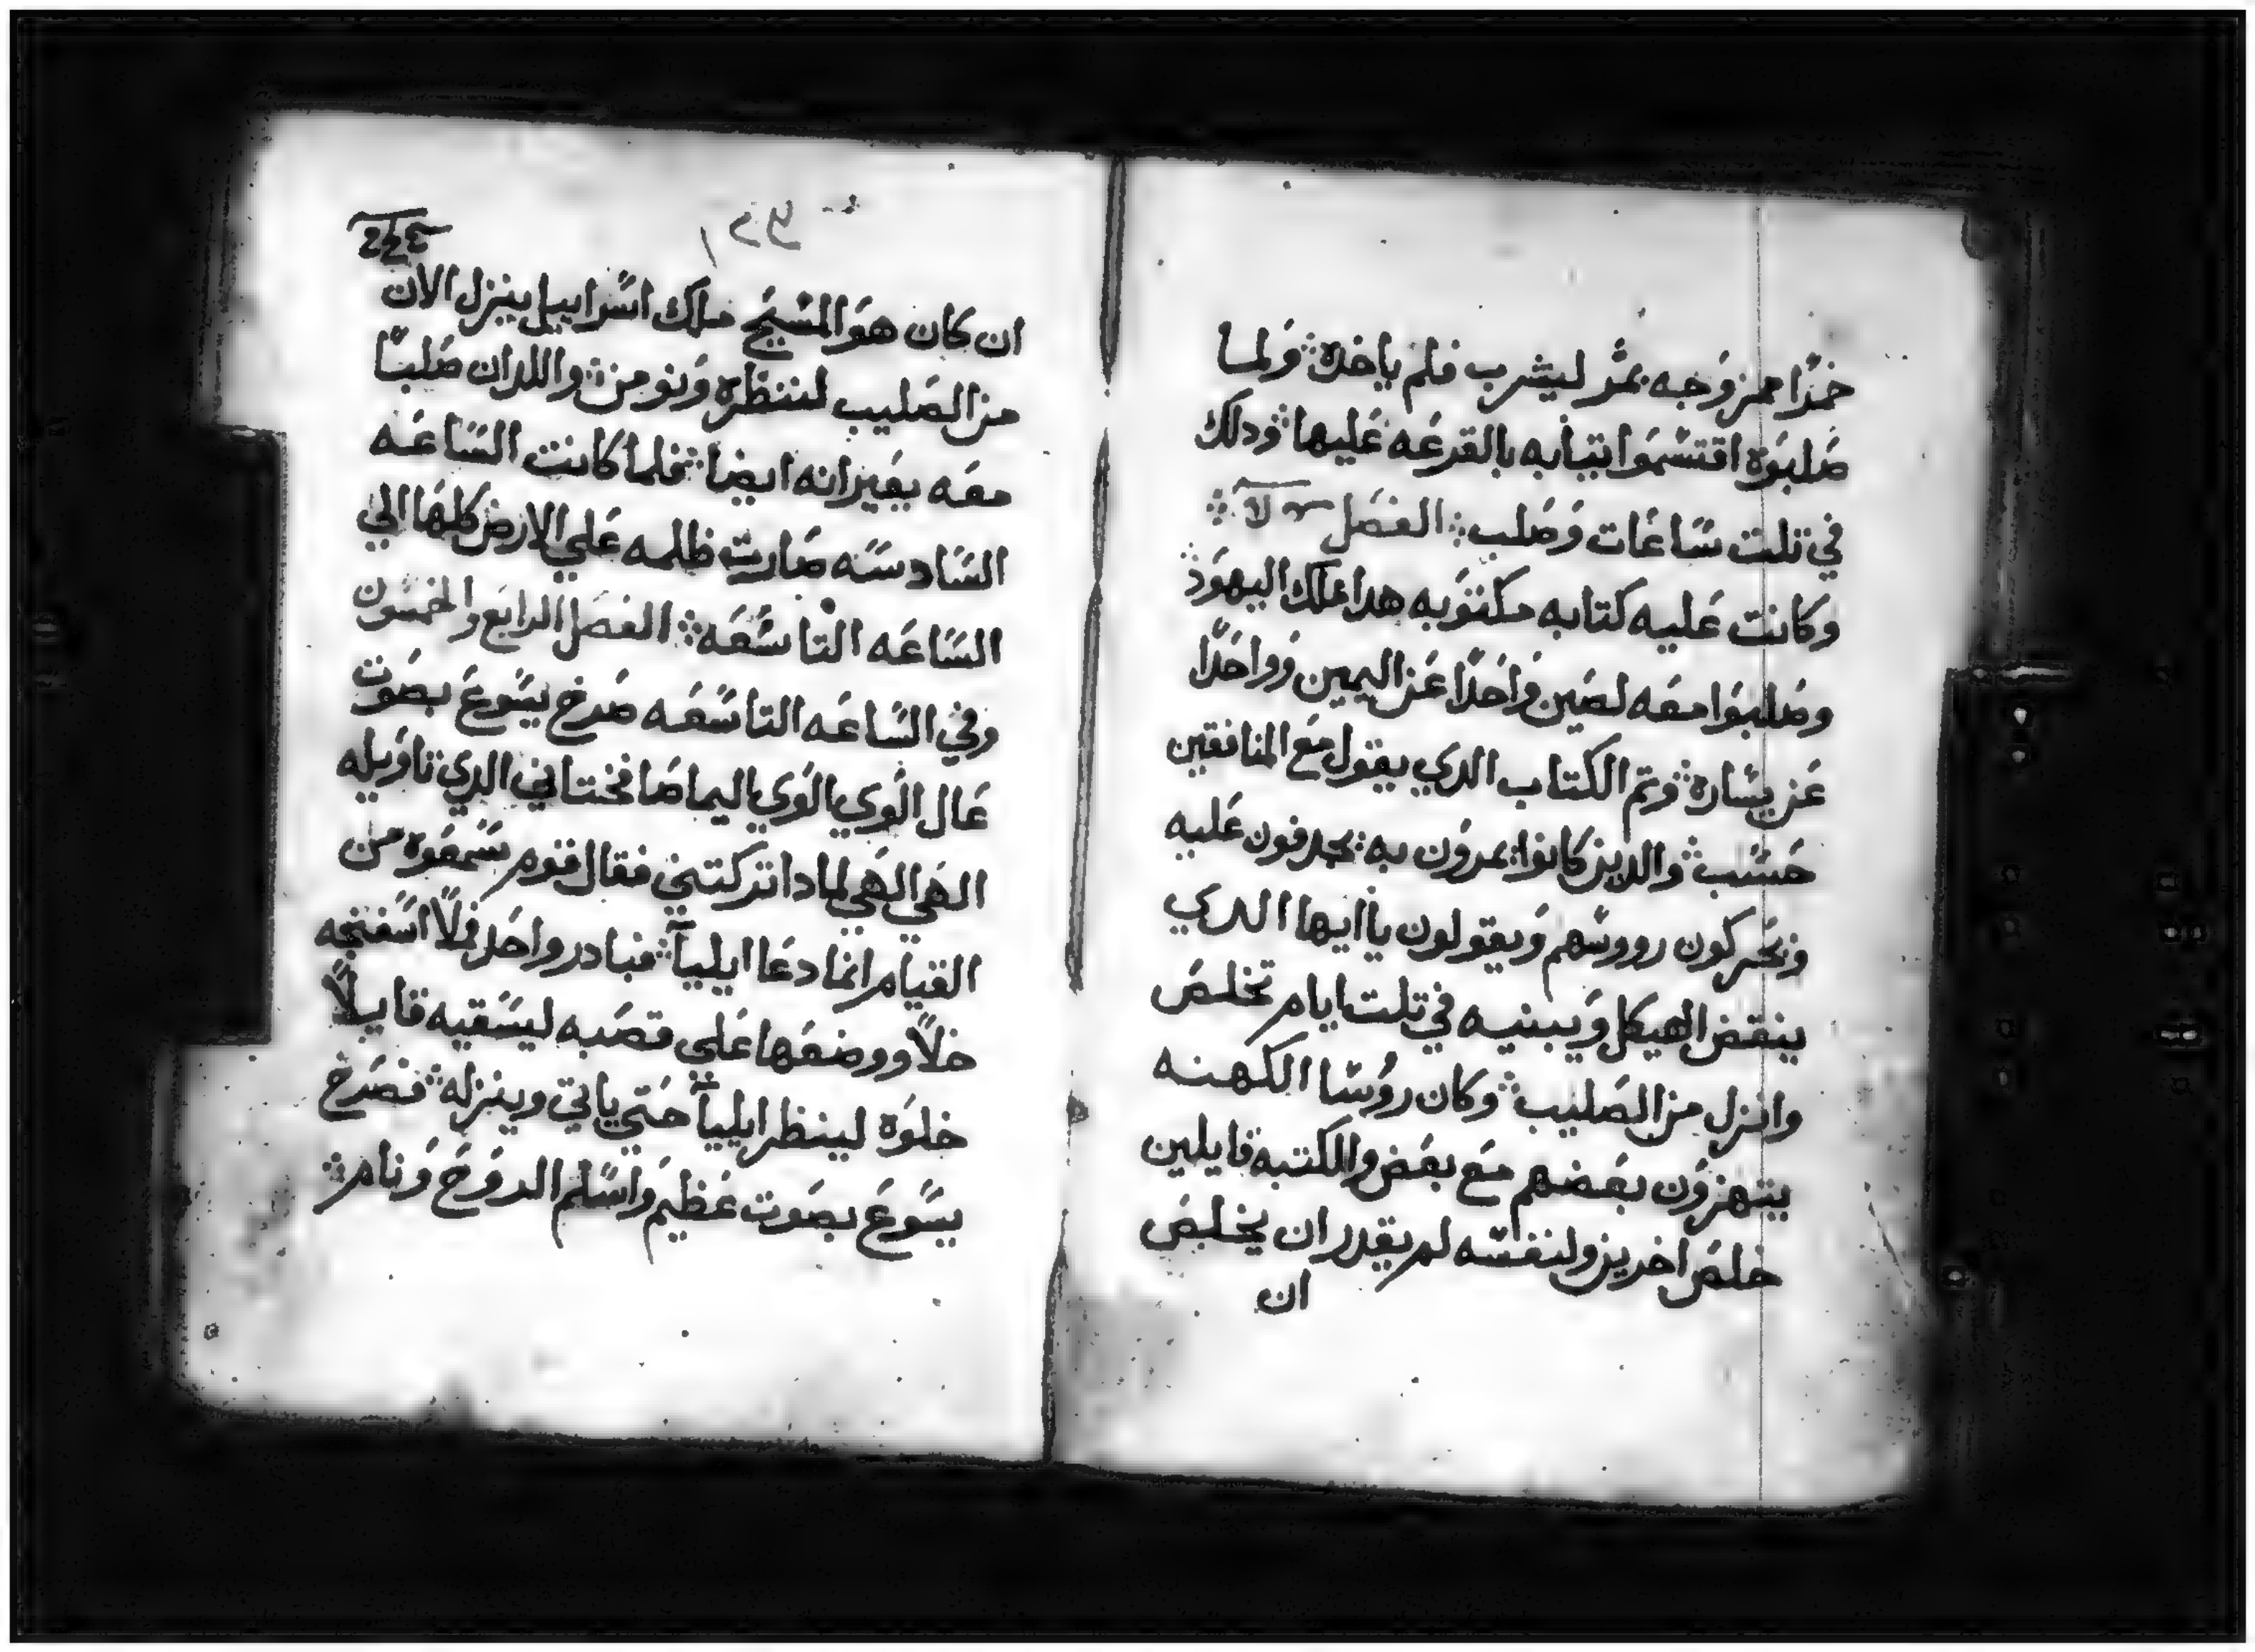 خمرًا ممزوجه بمر ليشرب فلم ياخده ولما
صلبوه اقتسموا تيابه بالقرعه عليها ودلك
في تلت ساعات وصلب الفصل
وكانت عليه كتابه مكتوبه هدا ملك اليهود
وصلبوا معه لصين واحدًا عن اليمين وواحدًا
عن يساره وتم الكتاب الدي يقول مع المنافقين
حسب والدين كانوا يمرون به يجدفون عليه
ويحركون رووسهم ويقولون يا ايها الدي
ينقض الهيكل ويبنيه في تلت ايام تخلص
وانزل من الصليب وكان روسا الكهنه
يتهزون بعضهم مع بعض والكتبه قايلين
خلص اخرين ولنفسه لم يقدر ان يخلص
ان
ان كان هو المسيح ملك اسراييل ينزل الان
من الصليب لننظره ونومن واللدان صلبا
معه يعيرانه ايضا فلما كانت الساعه
السادسه صارت ظلمه علي الارض كلها الي
الساعه التاسعه الفصل الرابع والخمسون
وفي الساعه التاسعه صرخ يسوع بصوت
عال الوي الوي اليما صافختاني الدي تاويله
الهي الهي لمادا تركتني فقال قوم سمعوه من
القيام انما دعا ايليا فبادر واحد فملا اسفنجه
خلاً ووضعها علي قصبه ليسقيه قايلاً
خلوه لينظر ايليا حتي ياتي وينزله فصرخ
يسوع بصوت عظيم واسلم الروح ونام